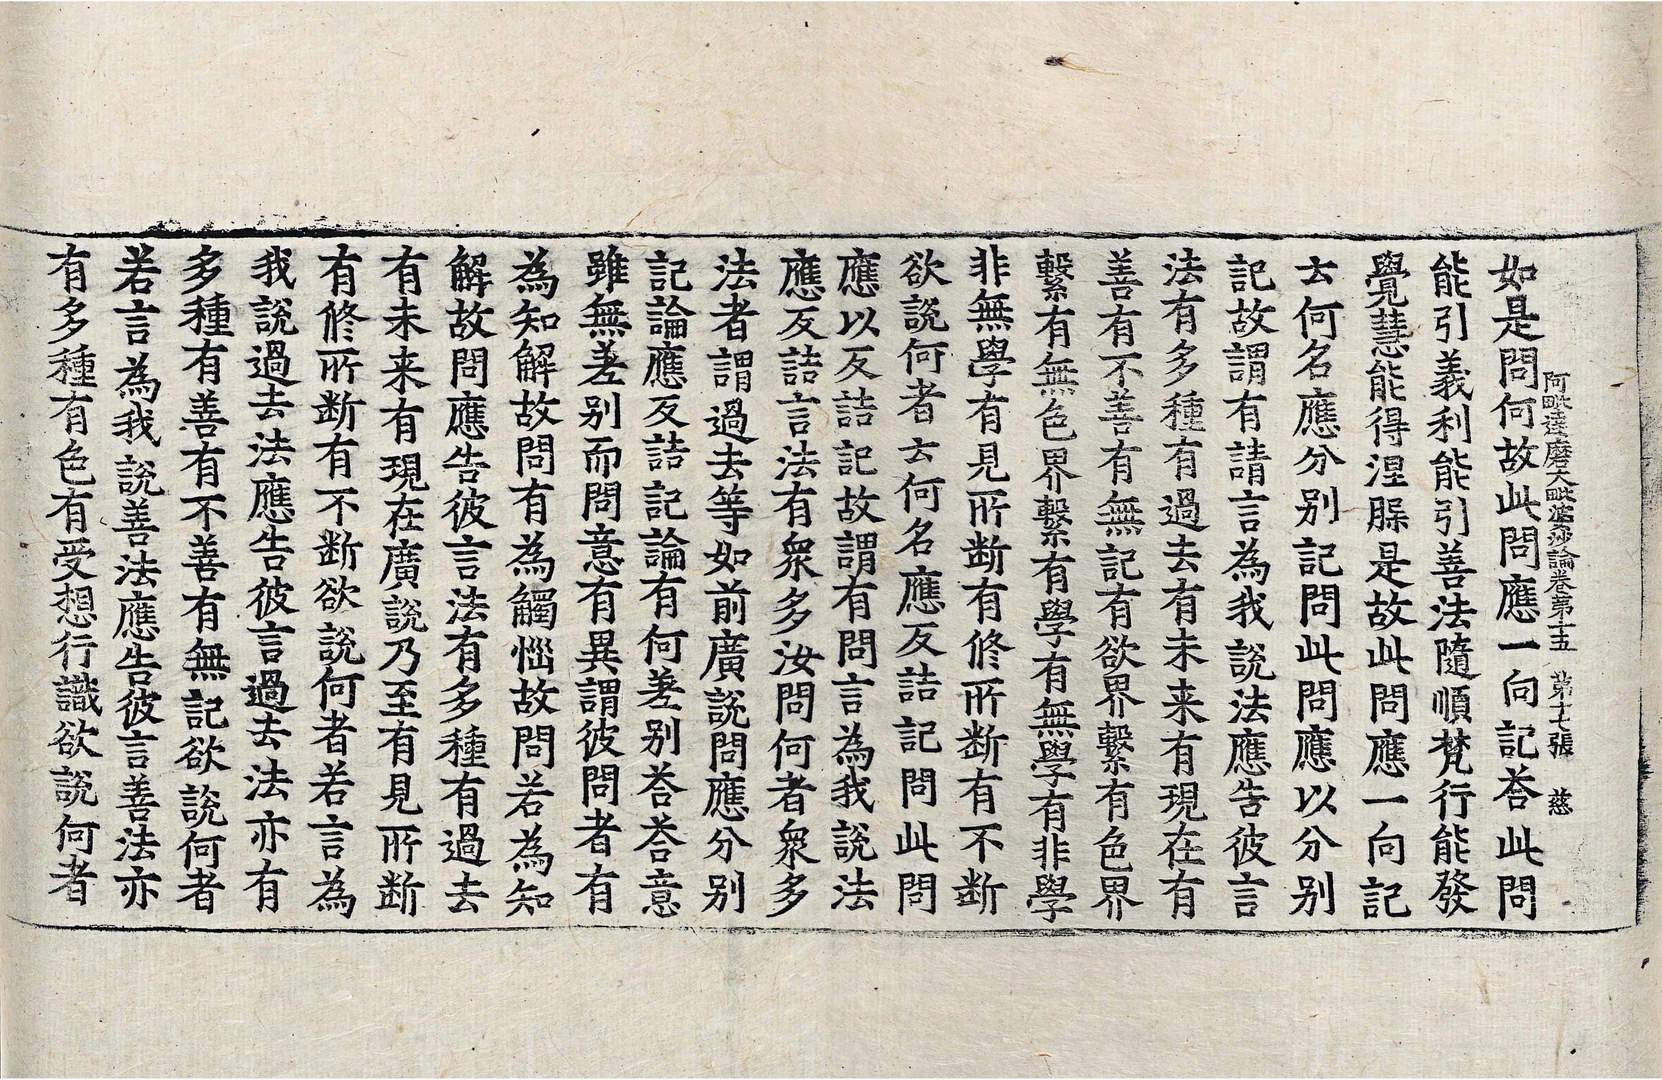 阿毗達磨大毗婆沙論卷第十五　第十七張　慈
如是問何故此問應一向記荅此問
能引義利能引善法隨順梵行能發
覺慧能得涅槃是故此問應一向記
云何名應分別記問此問應以分別
記故謂有請言為我說法應告彼言
法有多種有過去有未来有現在有
善有不善有無記有欲界繫有色界
繫有無色界繫有學有無學有非學
非無學有見所断有修所断有不断
欲說何者云何名應反詰記問此問
應以反詰記故謂有問言為我說法
應反詰言法有衆多汝問何者衆多
法者謂過去等如前廣說問應分別
記論應反詰記論有何差別荅荅意
雖無差別而問意有異謂彼問者有
為知解故問有為觸惱故問若為知
解故問應告彼言法有多種有過去
有未来有現在廣說乃至有見所断
有修所断有不断欲說何者若言為
我說過去法應告彼言過去法亦有
多種有善有不善有無記欲說何者
若言為我說善法應告彼言善法亦
有多種有色有受想行識欲說何者